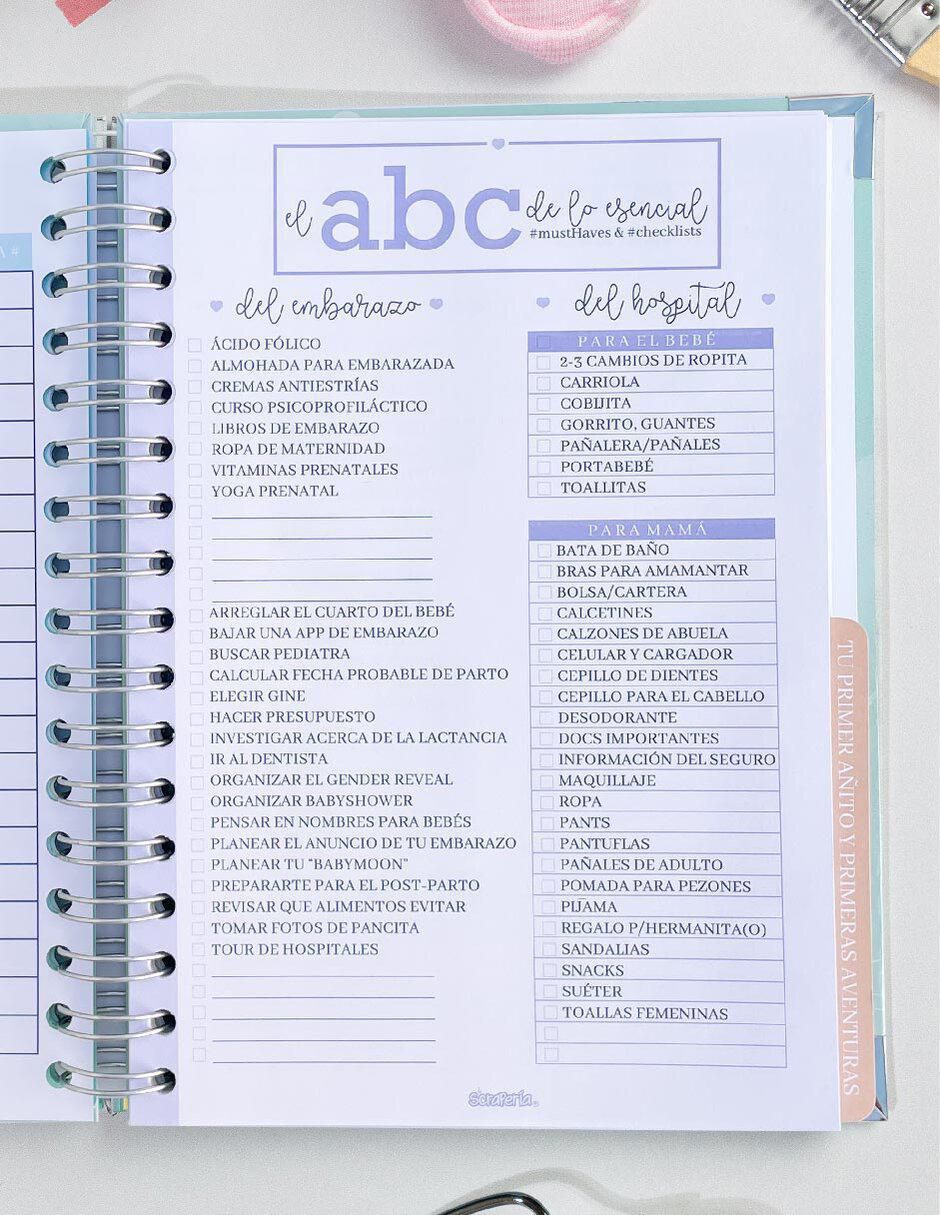 # A
el abc de lo esencial
#mustHaves & #checklists
del embarazo
ÁCIDO FÓLICO
ALMOHADA PARA EMBARAZADA
CREMAS ANTIESTRÍAS
CURSO PSICOPROFILÁCTICO
LIBROS DE EMBARAZO
ROPA DE MATERNIDAD
VITAMINAS PRENATALES
YOGA PRENATAL
ARREGLAR EL CUARTO DEL BEBÉ
BAJAR UNA APP DE EMBARAZO
BUSCAR PEDIATRA
CALCULAR FECHA PROBABLE DE PARTO
ELEGIR GINE
HACER PRESUPUESTO
INVESTIGAR ACERCA DE LA LACTANCIA
IR AL DENTISTA
ORGANIZAR EL GENDER REVEAL
ORGANIZAR BABYSHOWER
PENSAR EN NOMBRES PARA BEBÉS
PLANEAR EL ANUNCIO DE TU EMBARAZO
PLANEAR TU "BABYMOON"
PREPARARTE PARA EL POST-PARTO
REVISAR QUE ALIMENTOS EVITAR
TOMAR FOTOS DE PANCITA
TOUR DE HOSPITALES
del hospital
PARA EL BEBÉ
2-3 CAMBIOS DE ROPITA
CARRIOLA
COBIJITA
GORRITO, GUANTES
PAÑALERA/PAÑALES
PORTABEBÉ
TOALLITAS
PARA MAMÁ
BATA DE BAÑO
BRAS PARA AMAMANTAR
BOLSA/CARTERA
CALCETINES
CALZONES DE ABUELA
CELULAR Y CARGADOR
CEPILLO DE DIENTES
CEPILLO PARA EL CABELLO
DESODORANTE
DOCS IMPORTANTES
INFORMACIÓN DEL SEGURO
MAQUILLAJE
ROPA
PANTS
PANTUFLAS
PAÑALES DE ADULTO
POMADA PARA PEZONES
PIJAMA
REGALO P/HERMANITA(O)
SANDALIAS
SNACKS
SUÉTER
TOALLAS FEMENINAS
TU PRIMER AÑITO Y PRIMERAS AVENTURAS
Scrapería